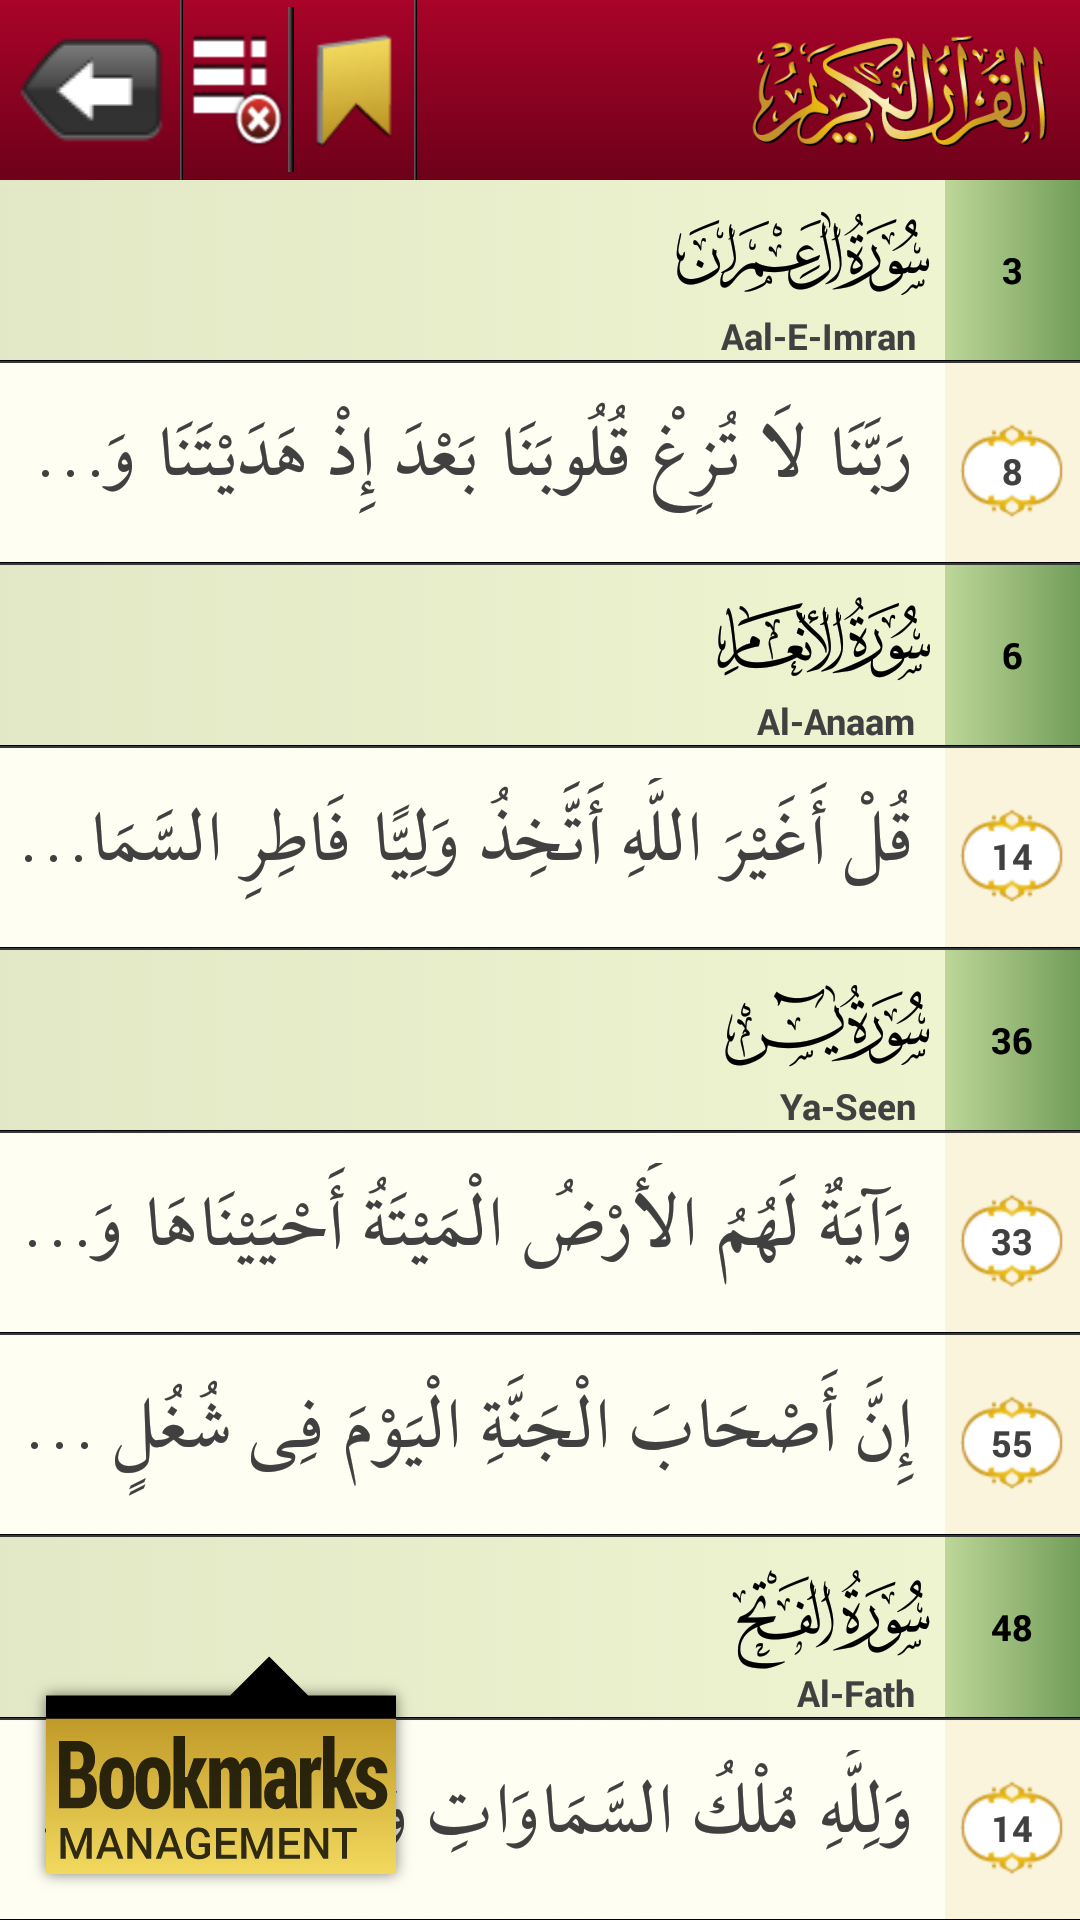 القُرآن الكَرِيمْ
سُورَةُ آلِ عِمْرَان
3
Aal-E-Imran
رَبَّنَا لاَ تُزِغْ قُلُوبَنَا بَعْدَ إِذْ هَدَيْتَنَا وَ...
8
سُورَةُ الأَنْعَام
6
Al-Anaam
قُلْ أَغَيْرَ اللَّهِ أَتَّخِذُ وَلِيًّا فَاطِرِ السَّمَا...
14
سُورَةُ يسٓ
36
Ya-Seen
وَآيَةٌ لَهُمُ الأَرْضُ الْمَيْتَةُ أَحْيَيْنَاهَا وَ...
33
إِنَّ أَصْحَابَ الْجَنَّةِ الْيَوْمَ فِى شُغُلٍ ...
55
سُورَةُ الفَتْحِ
48
Al-Fath
وَلِلَّهِ مُلْكُ السَّمَاوَاتِ
14
Bookmarks
MANAGEMENT